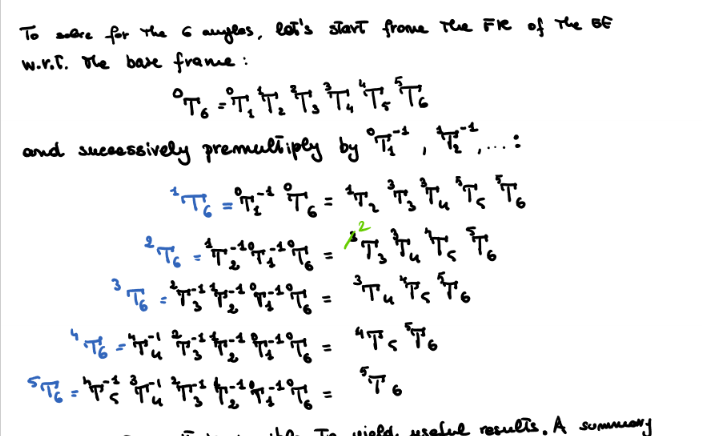 To solve for the 6 angles, let's start frome the FK of the EE
w.r.t. the base frame:
⁰T₆ = ⁰T₁ ¹T₂ ²T₃ ³T₄ ⁴T₅ ⁵T₆
and successively premultiply by ⁰T₁⁻¹, ¹T₂⁻¹, ...:
¹T₆ = ⁰T₁⁻¹ ⁰T₆ = ¹T₂ ³T₃ ³T₄ ⁵T₅ ⁵T₆
²T₆ = ¹T₂⁻¹ ⁰T₁⁻¹ ⁰T₆ = ²T₃ ³T₄ ⁴T₅ ⁵T₆
³T₆ = ²T₃⁻¹ ¹T₂⁻¹ ⁰T₁⁻¹ ⁰T₆ = ³T₄ ⁴T₅ ⁵T₆
⁴T₆ = ⁴T₄⁻¹ ²T₃⁻¹ ¹T₂⁻¹ ⁰T₁⁻¹ ⁰T₆ = ⁴T₅ ⁵T₆
⁵T₆ = ⁴T₅⁻¹ ³T₄⁻¹ ²T₃⁻¹ ¹T₂⁻¹ ⁰T₁⁻¹ ⁰T₆ = ⁵T₆
to yield useful results. A summary